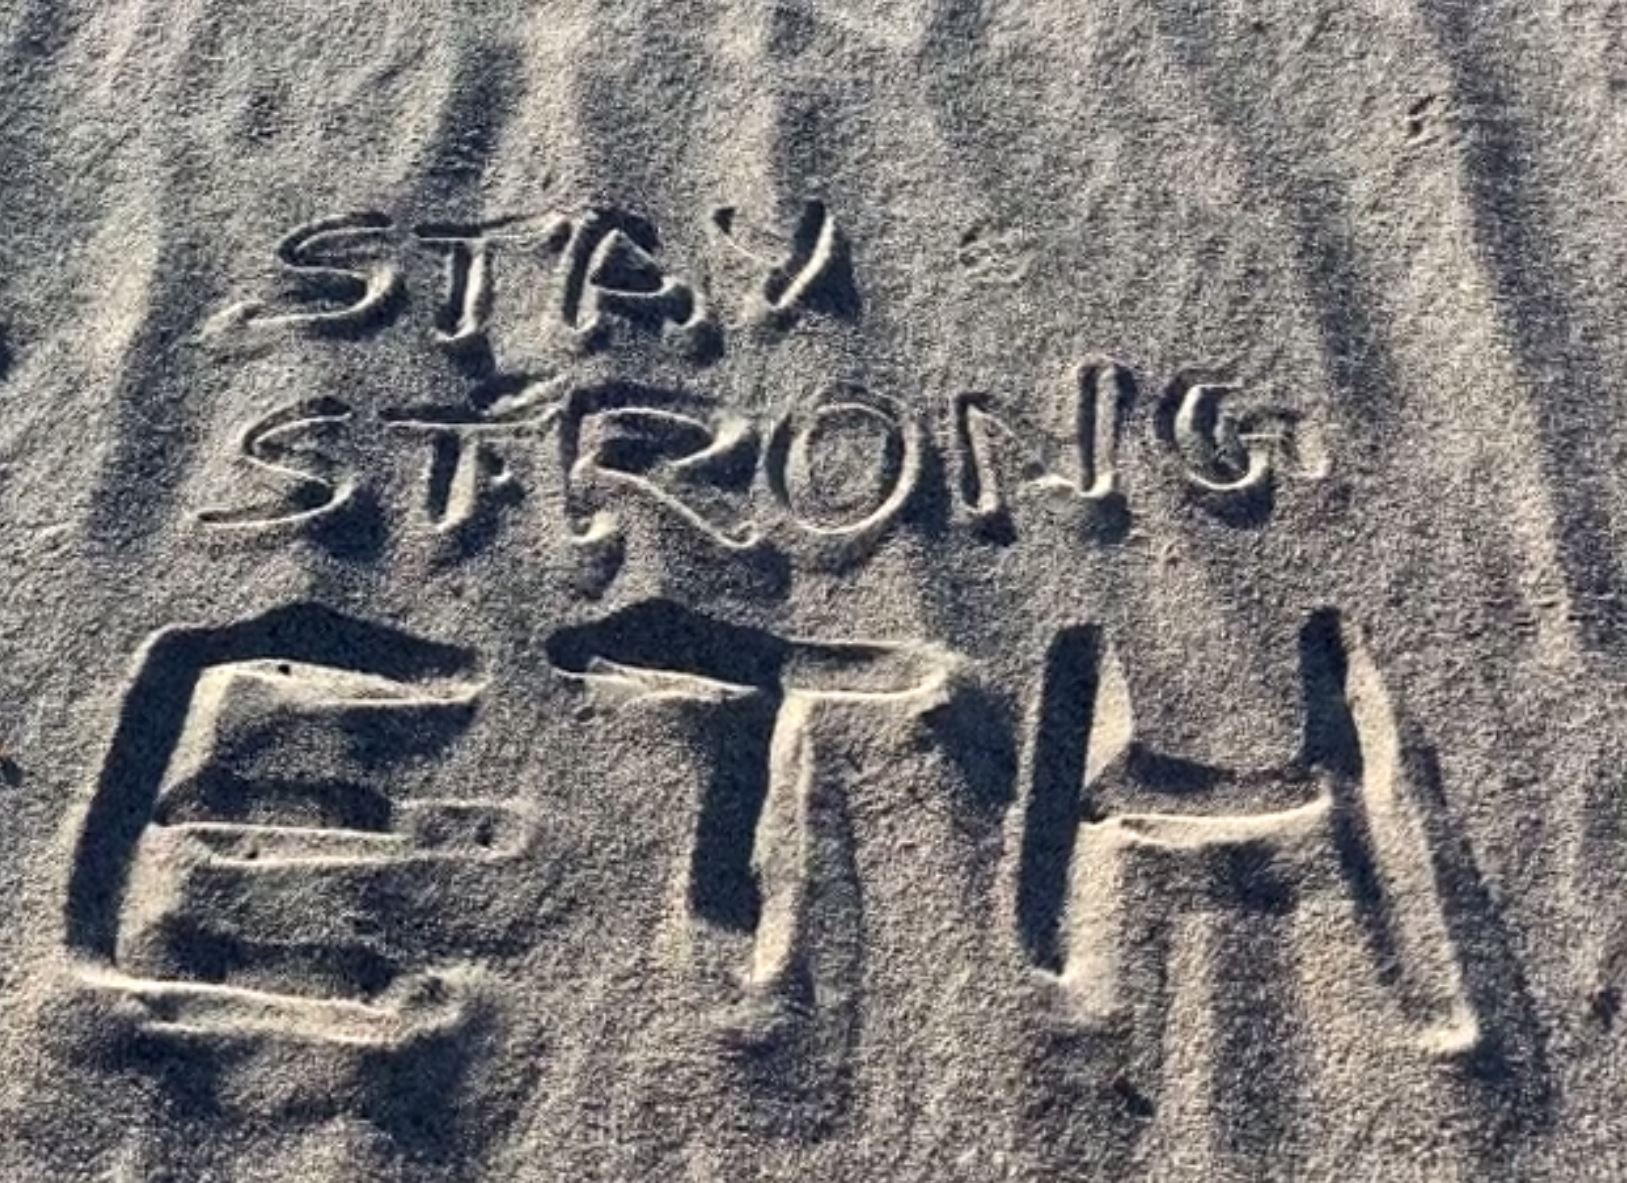 STAY
STRONG
ETH